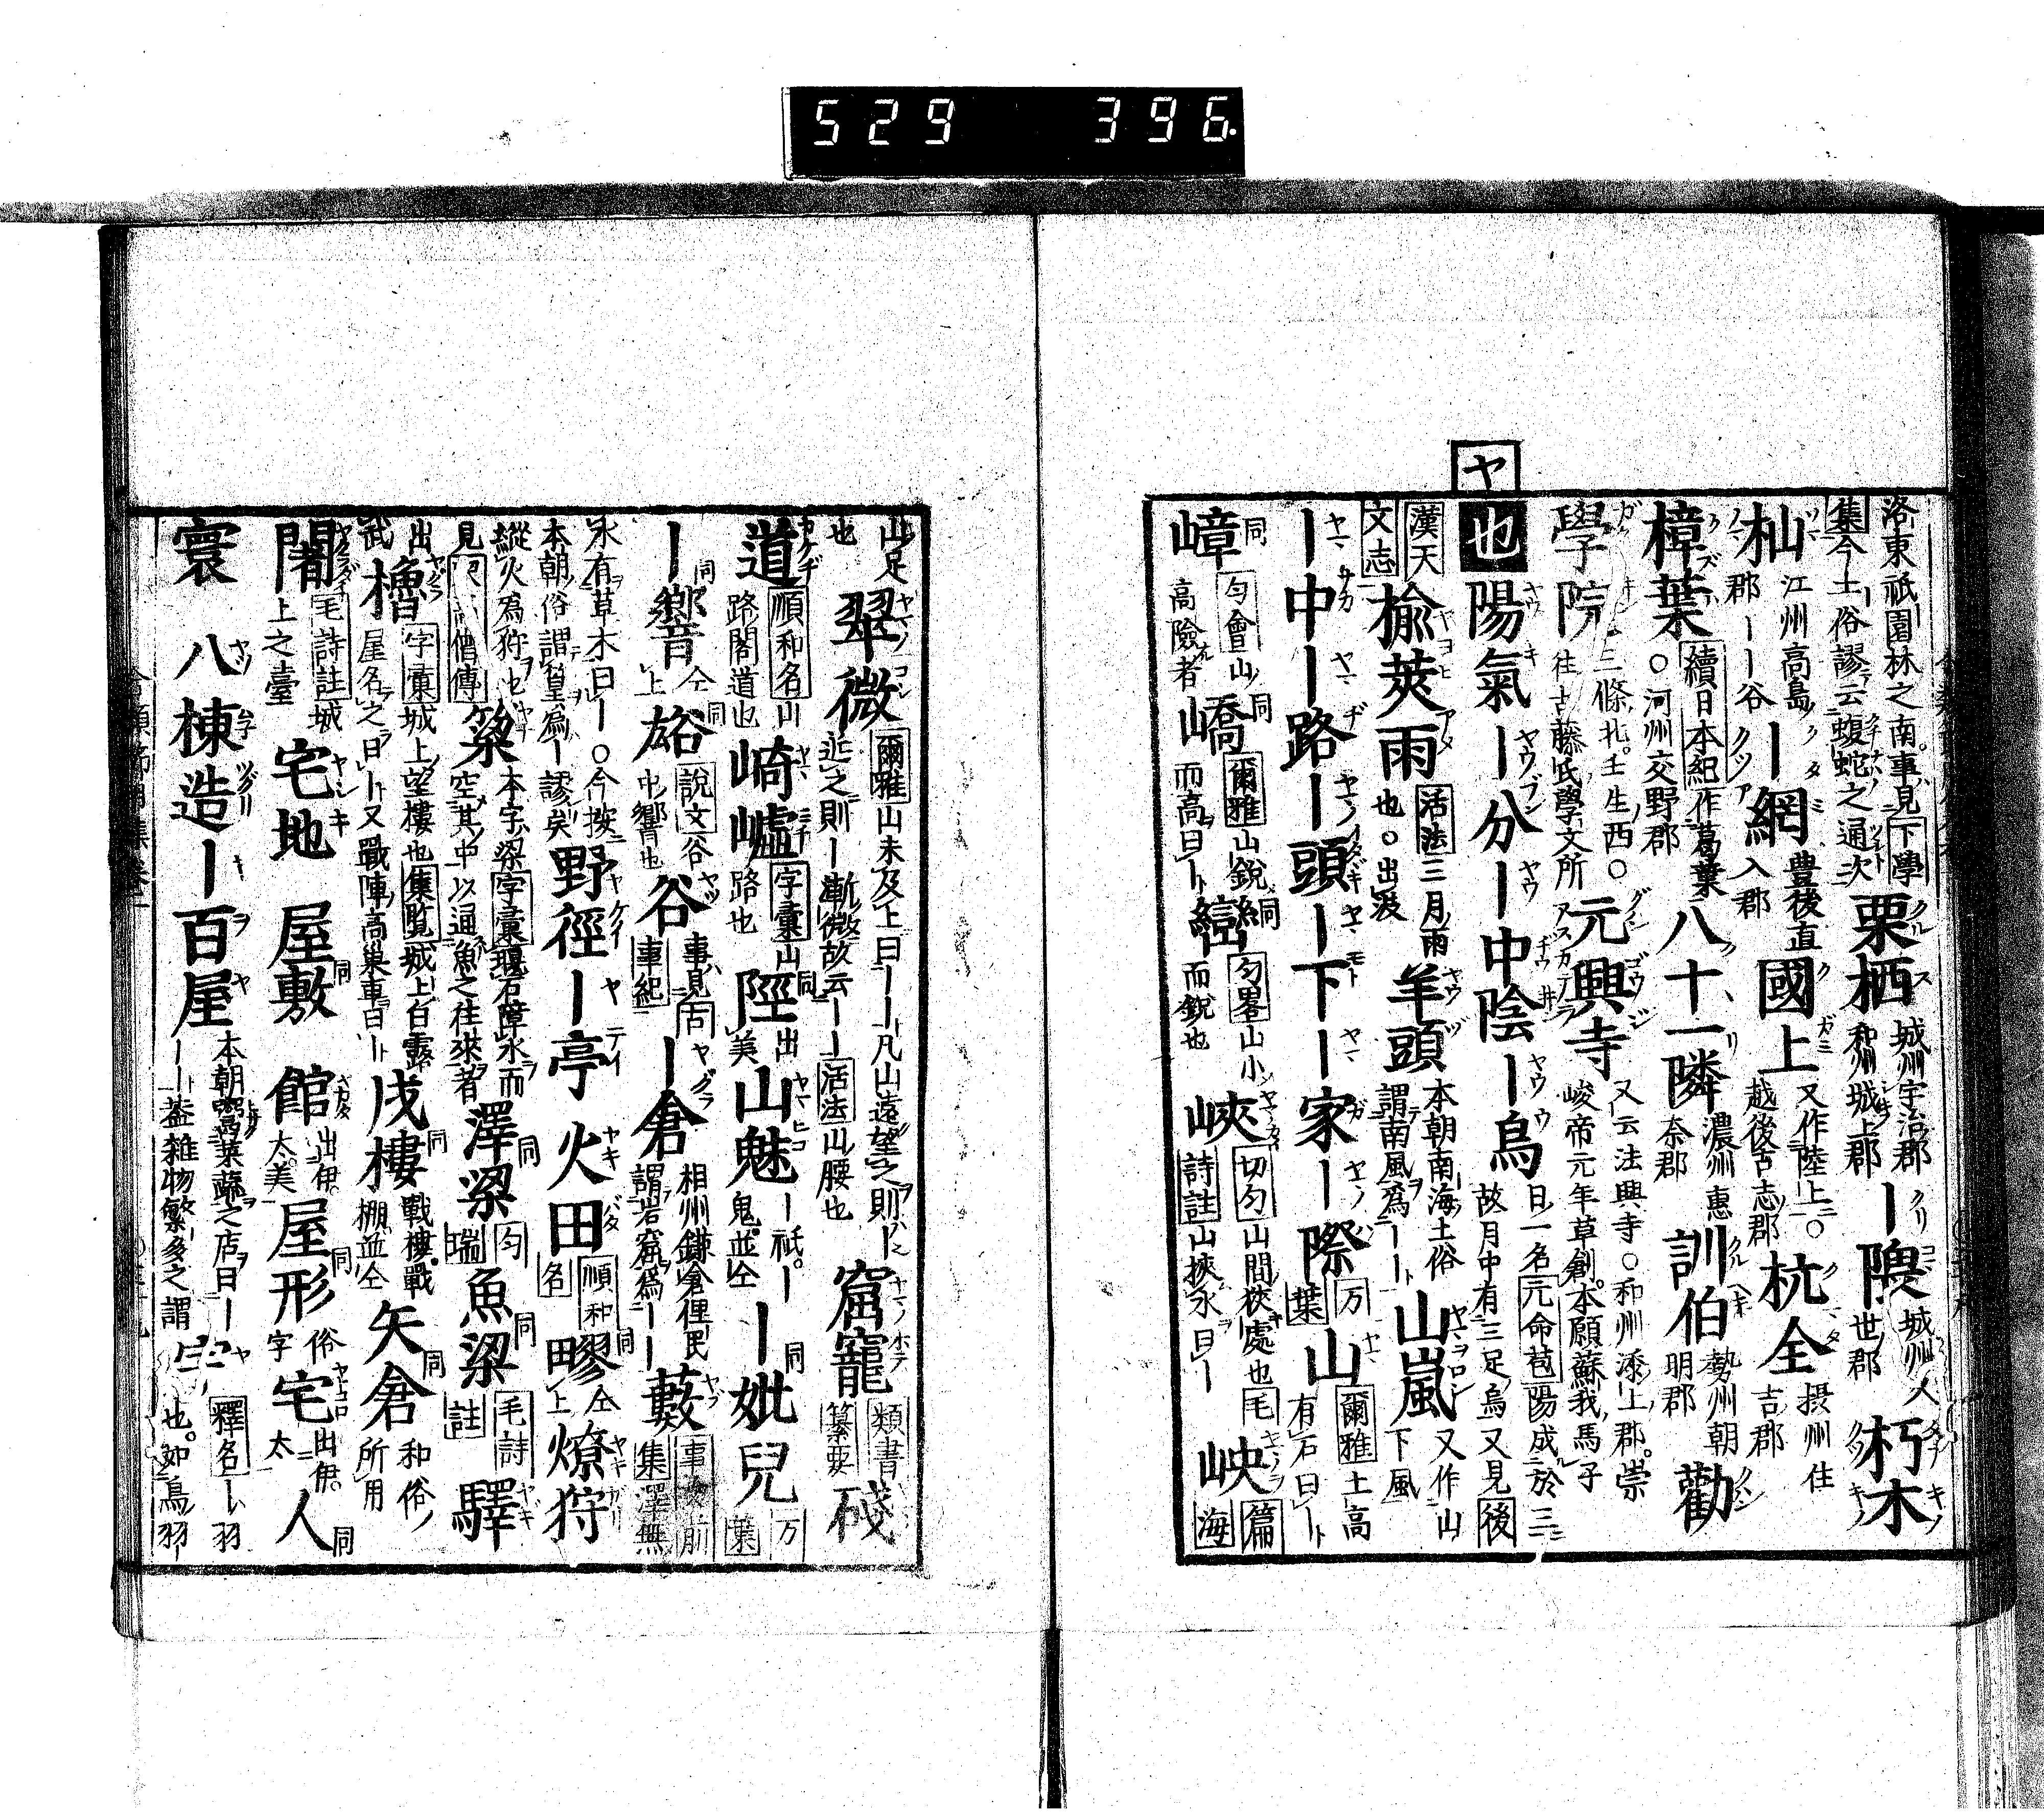 529 396.
ヤ
洛東祇園林之南事見下學
集今土俗謬云蝮蛇之通次
栗栖 城州宇治郡 和州城上郡
｜隈 城州 久世郡
朽木
江州高島郡｜｜谷
｜網 豊後直入郡
國上 又作陸上○越後古志郡
杭全 摂州住吉郡
樟葉 續日本紀作葛葉○河州交野郡
八十一隣 濃州惠奈郡
訓伯 勢州朝明郡
勸
學院 三條北壬生西○往古藤氏學文所
元興寺 又云法興寺○和州添上郡崇峻帝元年草創本願蘇我馬子
也 陽氣｜分｜中陰｜烏 日一名元命苞陽成於三故月中有三足烏又見後
漢天文志
楡莢雨 活法三月雨也○出淵
羊頭 本朝南海土俗謂南風為｜｜
山嵐 又作山下風
｜中｜路｜頭｜下｜家｜際 万葉
山 爾雅土高有石曰｜
嶂 匀會山高險者
嶠 爾雅山銳而高曰｜
巒 匀畧山小而銳也
峽 切匀山間狹處也毛詩註山挾水曰｜
峡 篇海
山足也
翠微 爾雅山未及上曰｜｜凡山遠望之則｜近之則｜漸微故云｜｜活法山腰也
窟寵 類書纂要
棧
道 順和名山路閣道也
崎嶇 字彙山路也
陘 出美
山魅 ｜祇｜鬼並仝
｜妣兒 万葉
｜響 仝上
谽 說文谷中響也
谷 事見同事紀
｜倉 相州鎌倉俚民謂岩窟為｜｜
藪 集澤無
水有草木曰｜○今按本朝俗謂篁為｜謬矣
野徑｜亭
火田 順和名
疁 仝上
燎狩
縱火為狩也見 高僧傳
簗 本字梁字彙 石障水而空其中以通魚之往來者
澤梁 匀瑞
魚梁 毛詩註
驛
出武
櫓 字彙城上望樓也集覧城上白露屋名之曰｜又戰陣高巢車曰｜
戍樓 戰樓戰棚並仝
矢倉 和俗所用
闍 毛詩註城上之臺
宅地 屋敷 館 出伊太美
屋形 俗字
宅 出伊太
人
寰 八棟造｜百屋 本朝鬻菓蓏之店曰｜｜｜蓋雜物繁多之謂
宇 釋名｜羽也如鳥羽｜